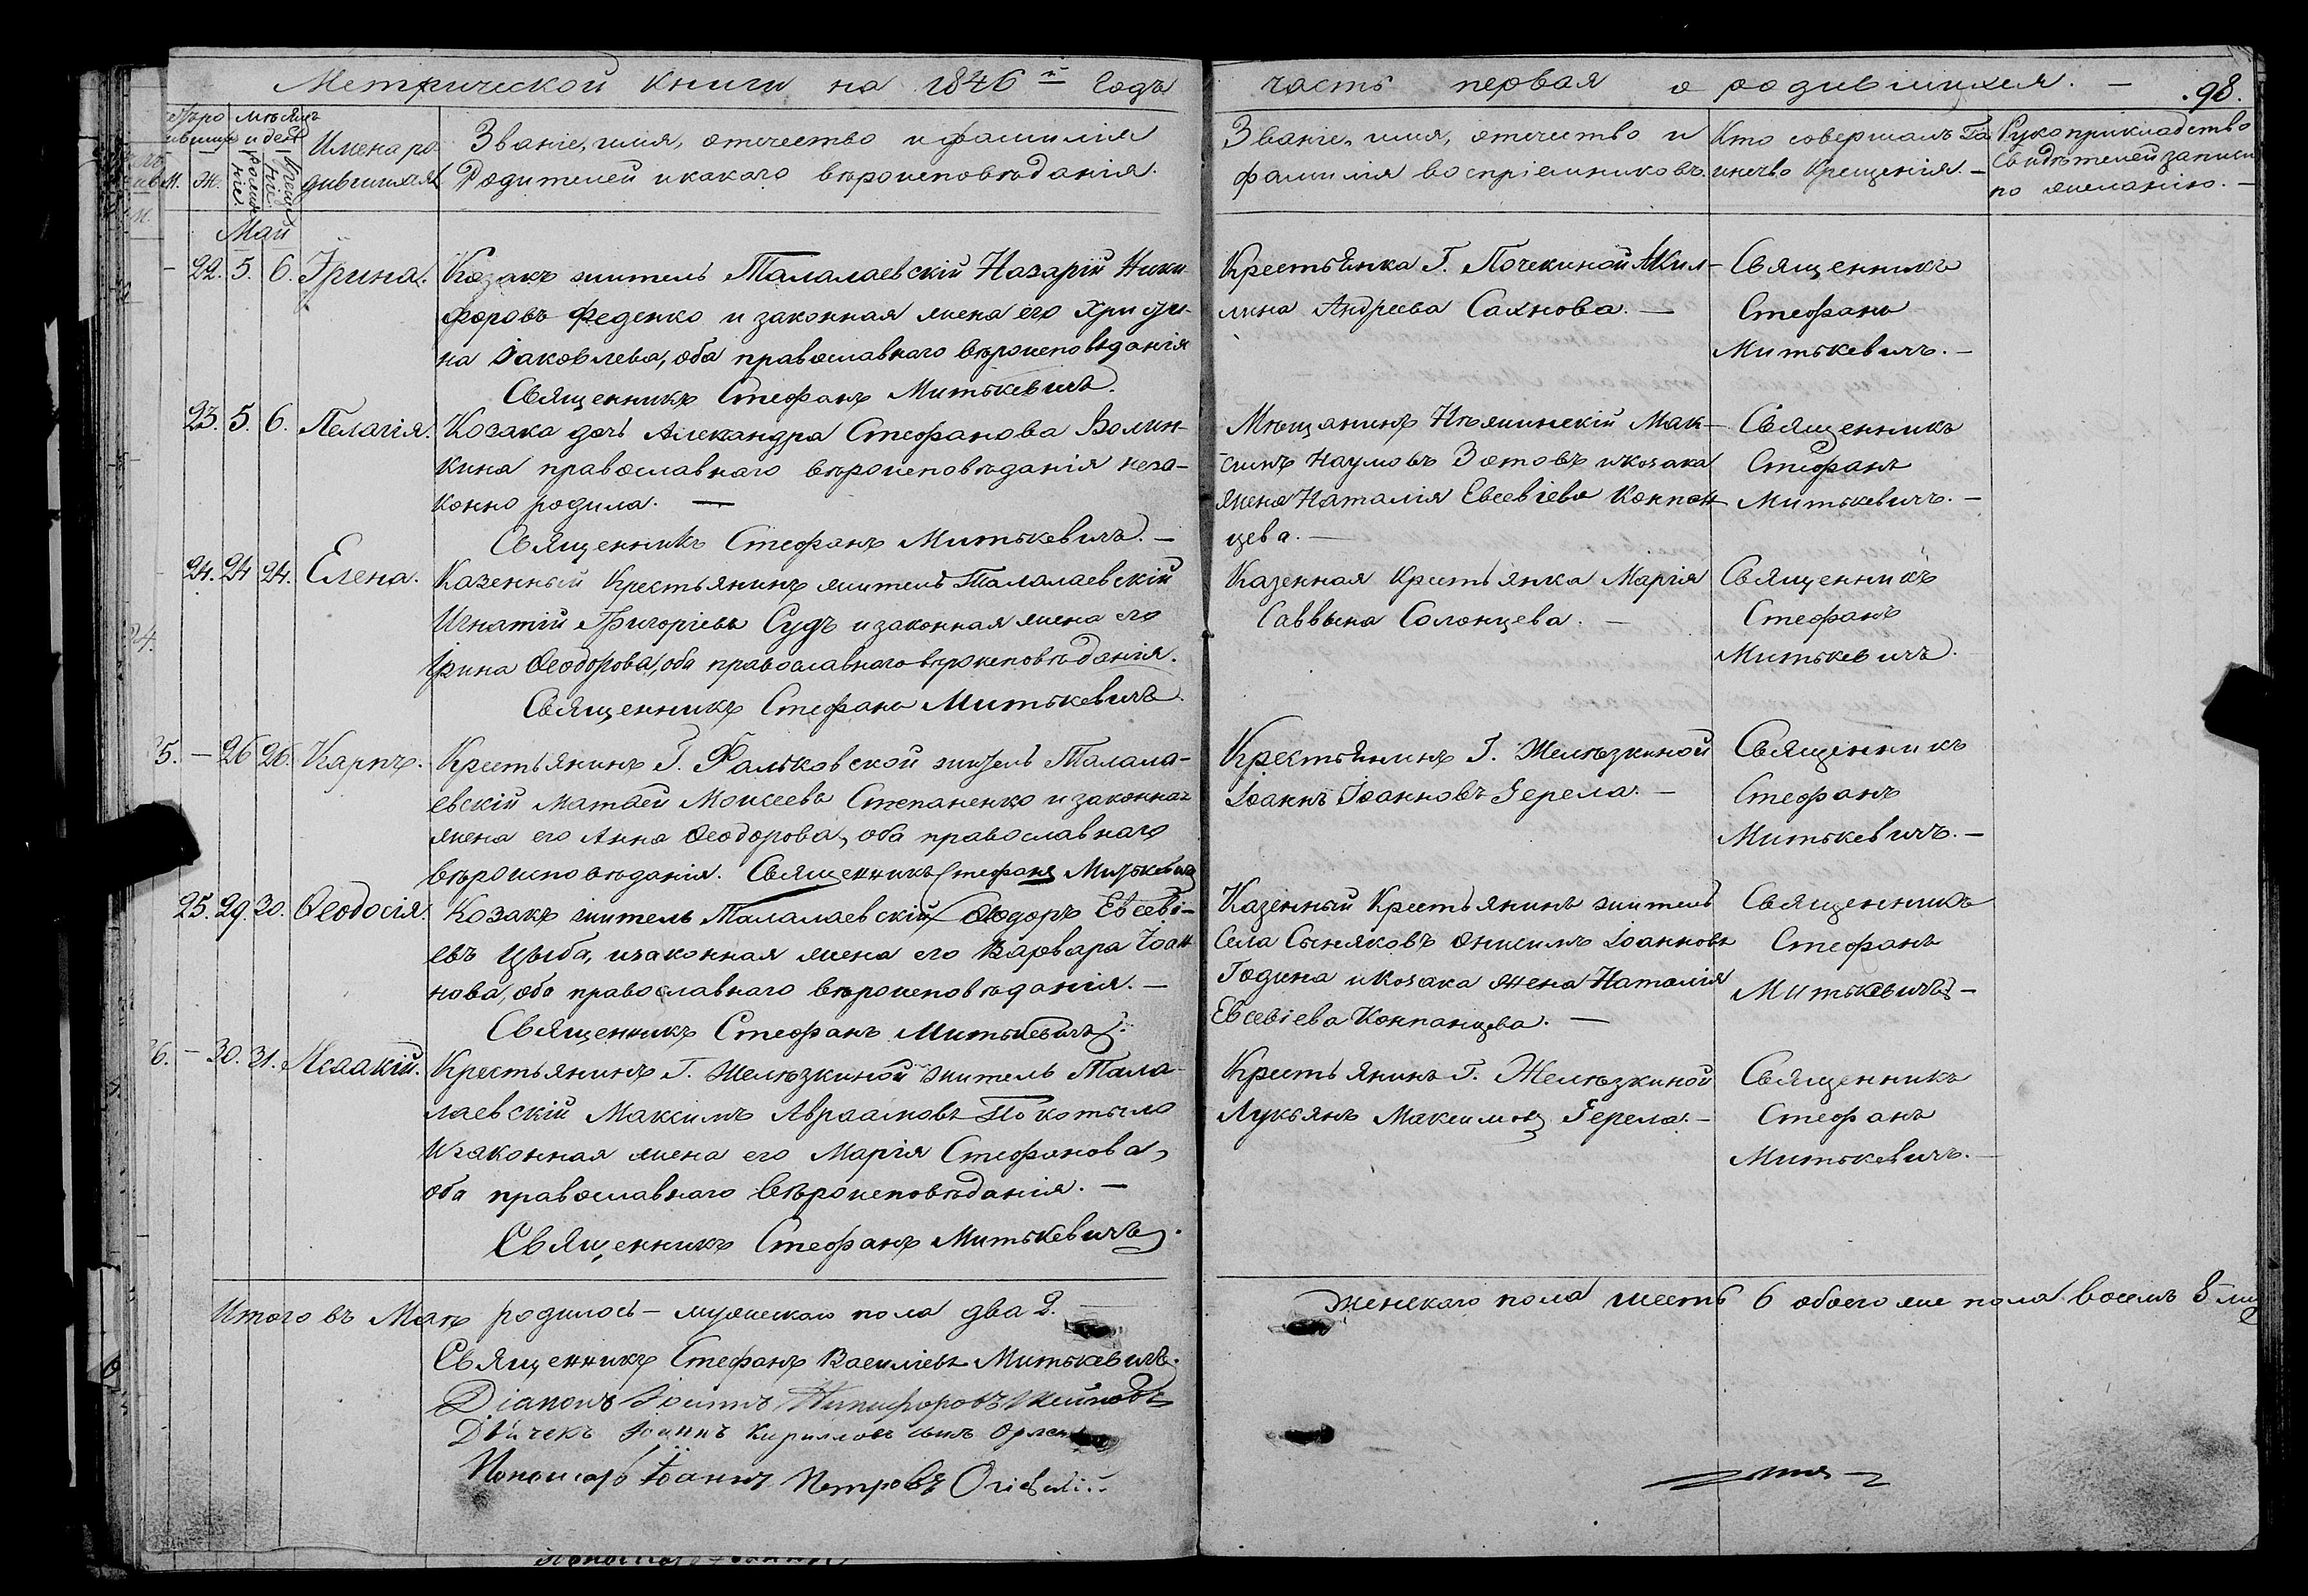 Метрической книги на 1846й Годъ часть первая о родившихся. — 98.
М. Ж.
Имена ро
дившихся.
Званіе, имя, отечество и фамилія
Родителей и какого вѣроисповѣданія.
Званіе, имя, отечество и
фамилія воспріемниковъ.
Кто совершалъ Та
инство Крещенія. —
Рукоприкладство
Свидѣтелей записи
по желанію. —
Май
— 22. 5. 6. Ірина.
Козакъ житель Талалаевскій Назарій Ники-
форовъ Феденко и законная жена его Христи-
на Іаковлева, оба православнаго вѣроисповѣданія
Священникъ Стефанъ Митькевичъ.
Крестьянка Г. Почекиной Акил-
лина Андреева Сахнова. —
Священникъ
Стефанъ
Митькевичъ. —
23. 5. 6. Пелагія.
Козака дочь Александра Стефанова Волин-
кина православнаго вѣроисповѣданія неза-
конно родила. —
Священникъ Стефанъ Митькевичъ. —
Мѣщанинъ Нѣжинскій Мак-
симъ Наумовъ Зотовъ и козака
жена Наталія Евсевіева Конпан-
цева. —
Священникъ
Стефанъ
Митькевичъ. —
24. 24 24. Елена.
Казенный Крестьянинъ житель Талалаевскій
Игнатій Григоріевъ Судъ и законная жена его
Ірина Ѳеодорова, оба православнаго вѣроисповѣданія.
Священникъ Стефанъ Митькевичъ.
Казенная Крестьянка Марія
Саввына Солонцева. —
Священникъ
Стефанъ
Митькевичъ.
25. — 26 26. Карпъ.
Крестьянинъ Г. Фальковской житель Талала-
евскій Матѳей Моисеевъ Степаненко и законная
жена его Анна Ѳеодорова, оба православнаго
вѣроисповѣданія. Священникъ Стефанъ Митькевичъ
Крестьянинъ Г. Желѣзкиной
Іоаннъ Іоанновъ Герела. —
Священникъ
Стефанъ
Митькевичъ. —
25. 29. 30. Ѳеодосія.
Козакъ житель Талалаевскій Ѳеодоръ Евсеві-
евъ Цыба, и законная жена его Варвара Іоан-
нова, оба православнаго вѣроисповѣданія. —
Священникъ Стефанъ Митькевичъ.
Казенный Крестьянинъ житель
Села Сыняковъ Онисимъ Іоанновъ
Година и козака жена Наталія
Евсевіева Конпанцева. —
Священникъ
Стефанъ
Митькевичъ —
26. — 30. 31. Исаакій.
Крестьянинъ Г. Желѣзкиной житель Тала-
лаевскій Максимъ Авраамовъ Покотыло
и законная жена его Марія Стефанова,
оба православнаго вѣроисповѣданія. —
Священникъ Стефанъ Митькевичъ.
Крестьянинъ Г. Желѣзкиной
Лукьянъ Максимовъ Герела. —
Священникъ
Стефанъ
Митькевичъ. —
Итого въ Маѣ родилось — мужескаго пола два 2. — Женскаго пола шесть 6 обоего же пола восемь 8
Священникъ Стефанъ Василіевъ Митькевичъ.
Діаконъ Никифоровъ
Дьячекъ Іоаннъ Кирилловъ сынъ
Пономарь Іоаннъ Петровъ